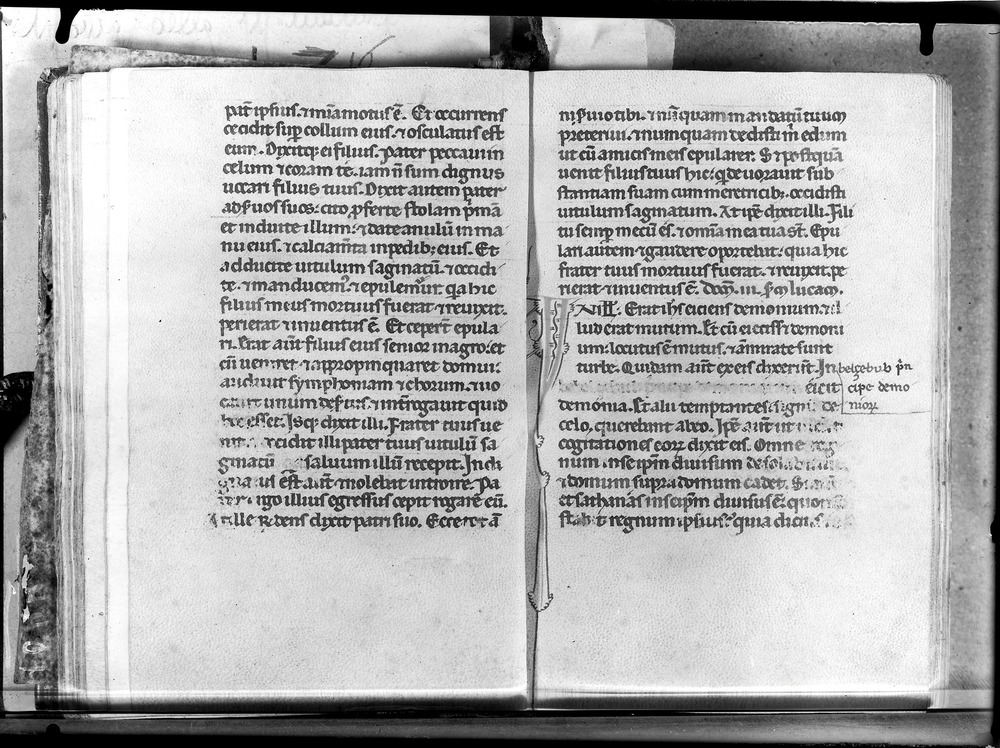 pat̃ ipsius. ⁊ mĩa motus ẽ. Et occurrens
cecidit sup̱ collum eius. ⁊ osculatus est
eum. Dixitq; ei filius. Pater peccaui in
celum ⁊ coram te. iam ñ sum dignus
uocari filius tuus. Dixit autem pater
ad ẜuos suos: cito ꝓferte stolam p̃mã
et induite illum: ⁊ date anulũ in ma
nu eius. ⁊ calciam̃ta in pedib; eius. Et
adducite uitulum saginatũ. ⁊ occidi
te. ⁊ manducem᷒. ⁊ epulemur. q̃a hic
filius meus mortuus fuerat ⁊ reuixit.
perierat ⁊ inuentus ẽ. Et ceper̃t epula
ri. Erat aũt filius eius senior in agro: et
cũ ueniret ⁊ appropinquaret domui:
audiuit symphoniam ⁊ chorum. ⁊ uo
cauit unum de ẜuis. ⁊ int̃rogauit quid
hec esset. Isq; dixit illi. Frater tuus ue
nit. ⁊ occidit illi pater tuus uitulũ sa
ginatũ saluum illũ recepit. Indi
gnatus est aũt ⁊ nolebat introire. Pa
ter ergo illius egressus cepit rogare eũ.
At ille r̃dens dixit patri suo. Ecce tot ã
nis ẜuio tibi. ⁊ nũquam mandatũ tuum
preteriui. ⁊ numquam dedisti m̃ edum
ut cũ amicis meis epularer. S; postquã
uenit filius tuus hic: q̃ deuorauit sub
stantiam suam cum meretricib; occidisti
uitulum saginatum. At ip̃e dixit illi. Fili
tu semp̱ mecũ es. ⁊ om̃ia mea tua st̃. Epu
lari autem ⁊ gaudere oportebit: quia hic
frater tuus mortuus fuerat. ⁊ reuixit. pe
rierat ⁊ inuentus ẽ. Dom̃. iii. sc̃m lucam.
IN iłł. Erat ih̃s eiciens demonium. ⁊ il
lud erat mutum. Et cũ eiecisset demoni
um: locutus ẽ mutus. ⁊ am̃irate sunt
turbe. Quidam aũt ex eis dixer̃t. In
eicit
demonia. Et alii temptantes signũ de
celo, querebant ab eo. Ip̃e aũt ut uidit
cogitationes eoꝝ dixit eis. Omne reg
num in se ip̃m diuisum desolabitur
⁊ domum supra domum cadet. Si
et sathanas in se ip̃m diuisus ẽ: quom
stabit regnum ipsius? quia dicitis
belzebub p̃n
cipe demo
nioꝝ